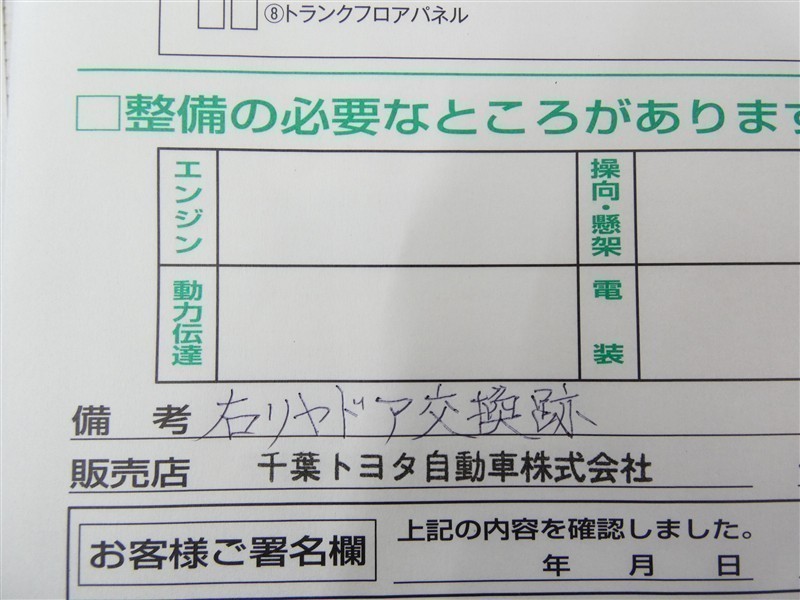 ⑧トランクフロアパネル
□整備の必要なところがあります
エンジン
操向・懸架
動力伝達
電装
備考 右リヤドア交換跡
販売店 千葉トヨタ自動車株式会社
お客様ご署名欄
上記の内容を確認しました。
年 月 日